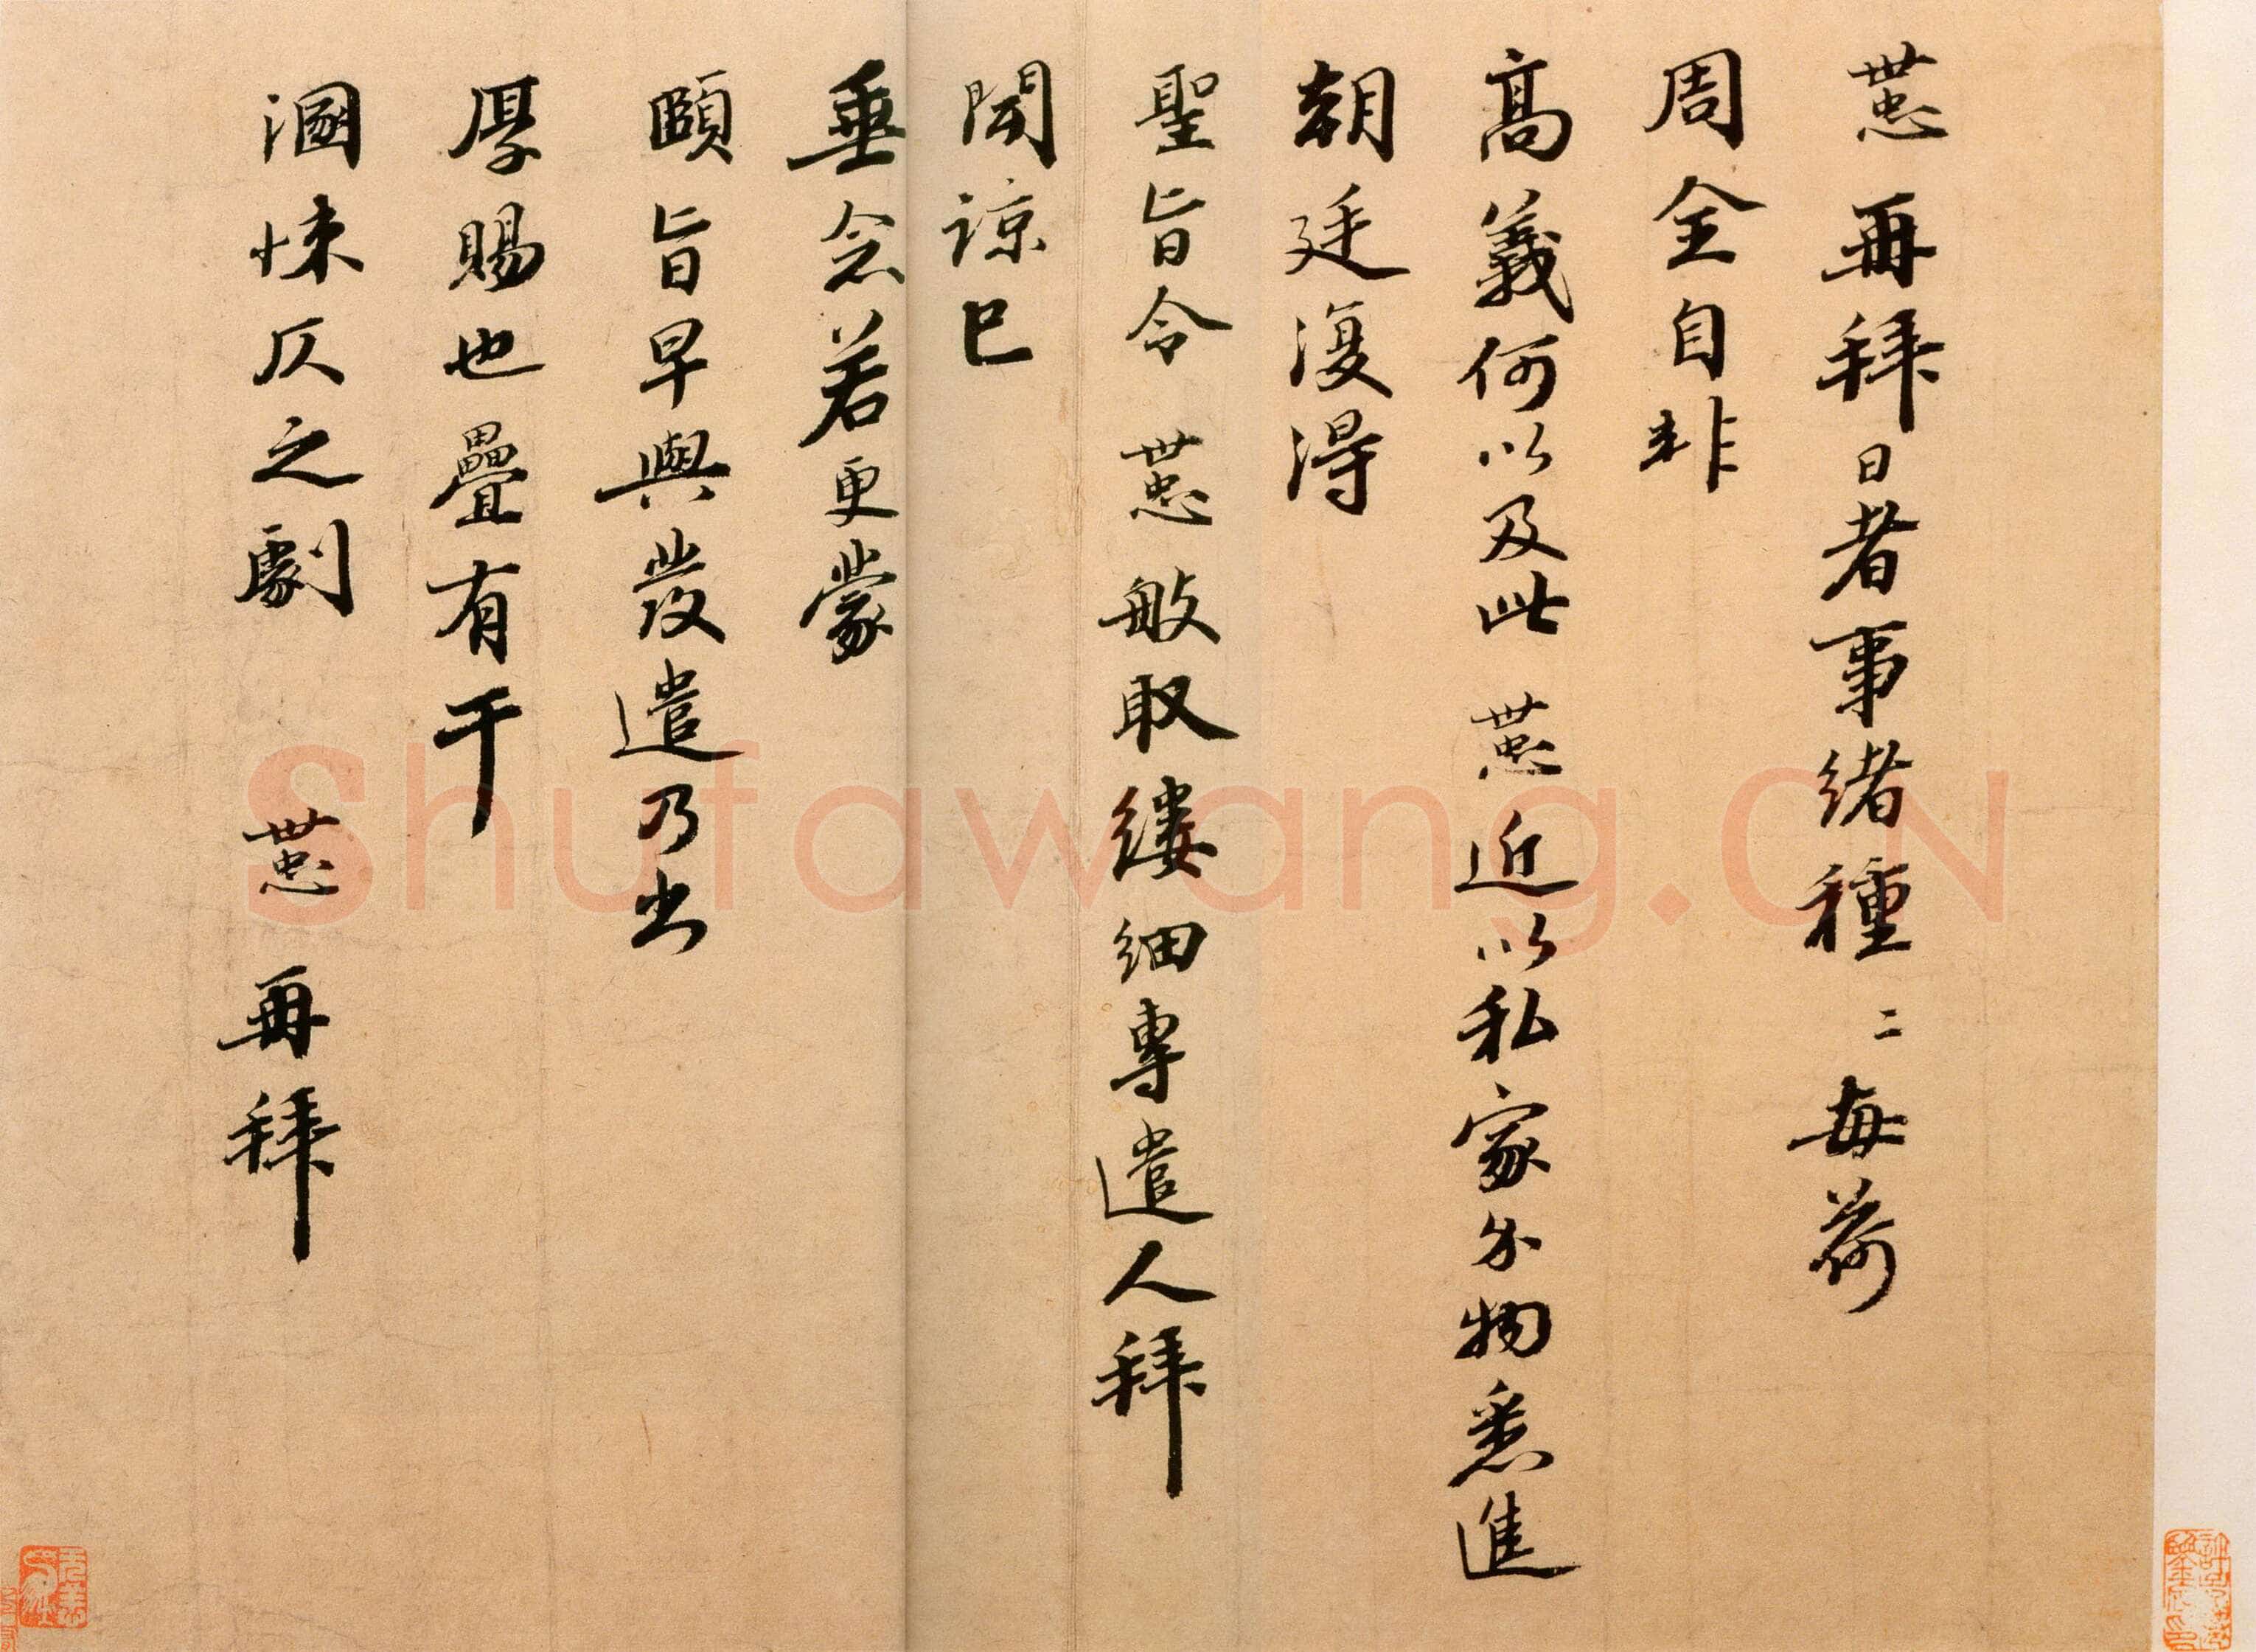 世忠再拜日者事緒種二每荷
周全自非
高義何以及此世忠近以私家分物悉進
朝廷復得
聖旨令世忠般取縷細專遣人拜
聞諒已
垂念若更蒙
頤旨早與發遣乃出
厚賜也疊有干
溷悚仄之劇 世忠再拜
Shufawang.CN